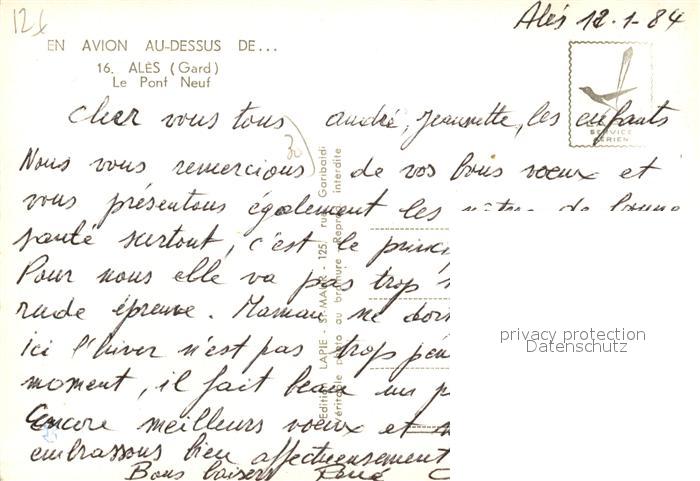 Alés 12-1-84
EN AVION AU-DESSUS DE...
16. ALÈS (Gard)
Le Pont Neuf
SERVICE
AERIEN
Cher vous tous andré, Jeannette, les enfants
Nous vous remercions de vos bons voeux et
vous présentons également les nôtres de bonne
santé surtout, c'est le princi
Pour nous elle va pas trop
rude épreuve. Maman ne
ici l'hiver n'est pas trop
moment, il fait beau un
Encore meilleurs voeux et
embrassons bien affectueusement
Bons baisers René
Editions LAPIE - ST-MAUR - 125, rue Garibaldi
Véritable photo au bromure Reproduction interdite
privacy protection
Datenschutz